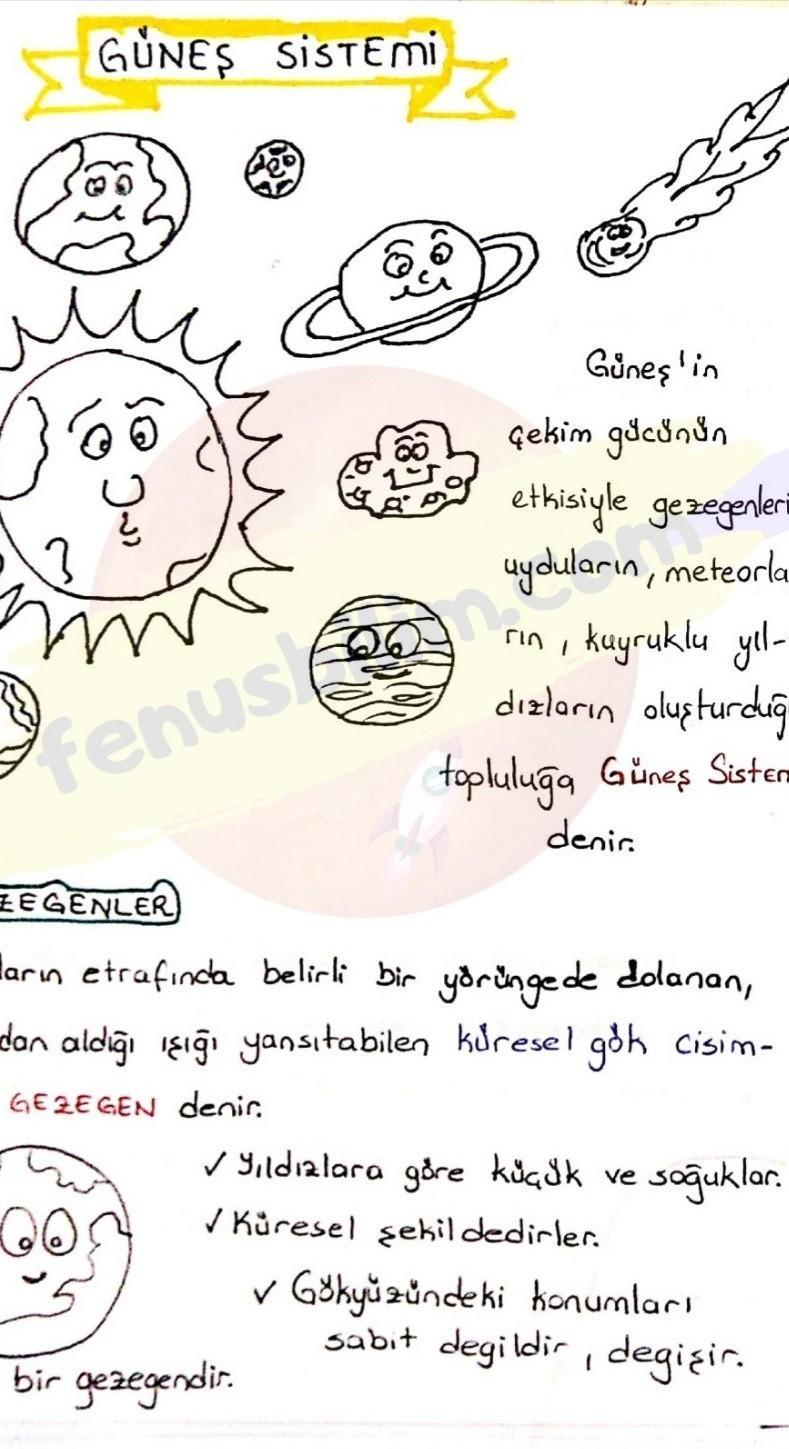 GÜNEŞ SİSTEMİ
Güneş'in
çekim gücünün
etkisiyle gezegenleri
uyduların, meteorla
rın, kuyruklu yıl-
dızların oluşturduğ
topluluğa Güneş Sistem
denir.
fenusbilim.com
ZEGENLER
ların etrafında belirli bir yörüngede dolanan,
dan aldığı ışığı yansıtabilen küresel gök cisim-
GEZEGEN denir.
✓ Yıldızlara göre küçük ve soğuklar.
✓ Küresel şekildedirler.
✓ Gökyüzündeki konumları
sabit degildir, degişir.
bir gezegendir.